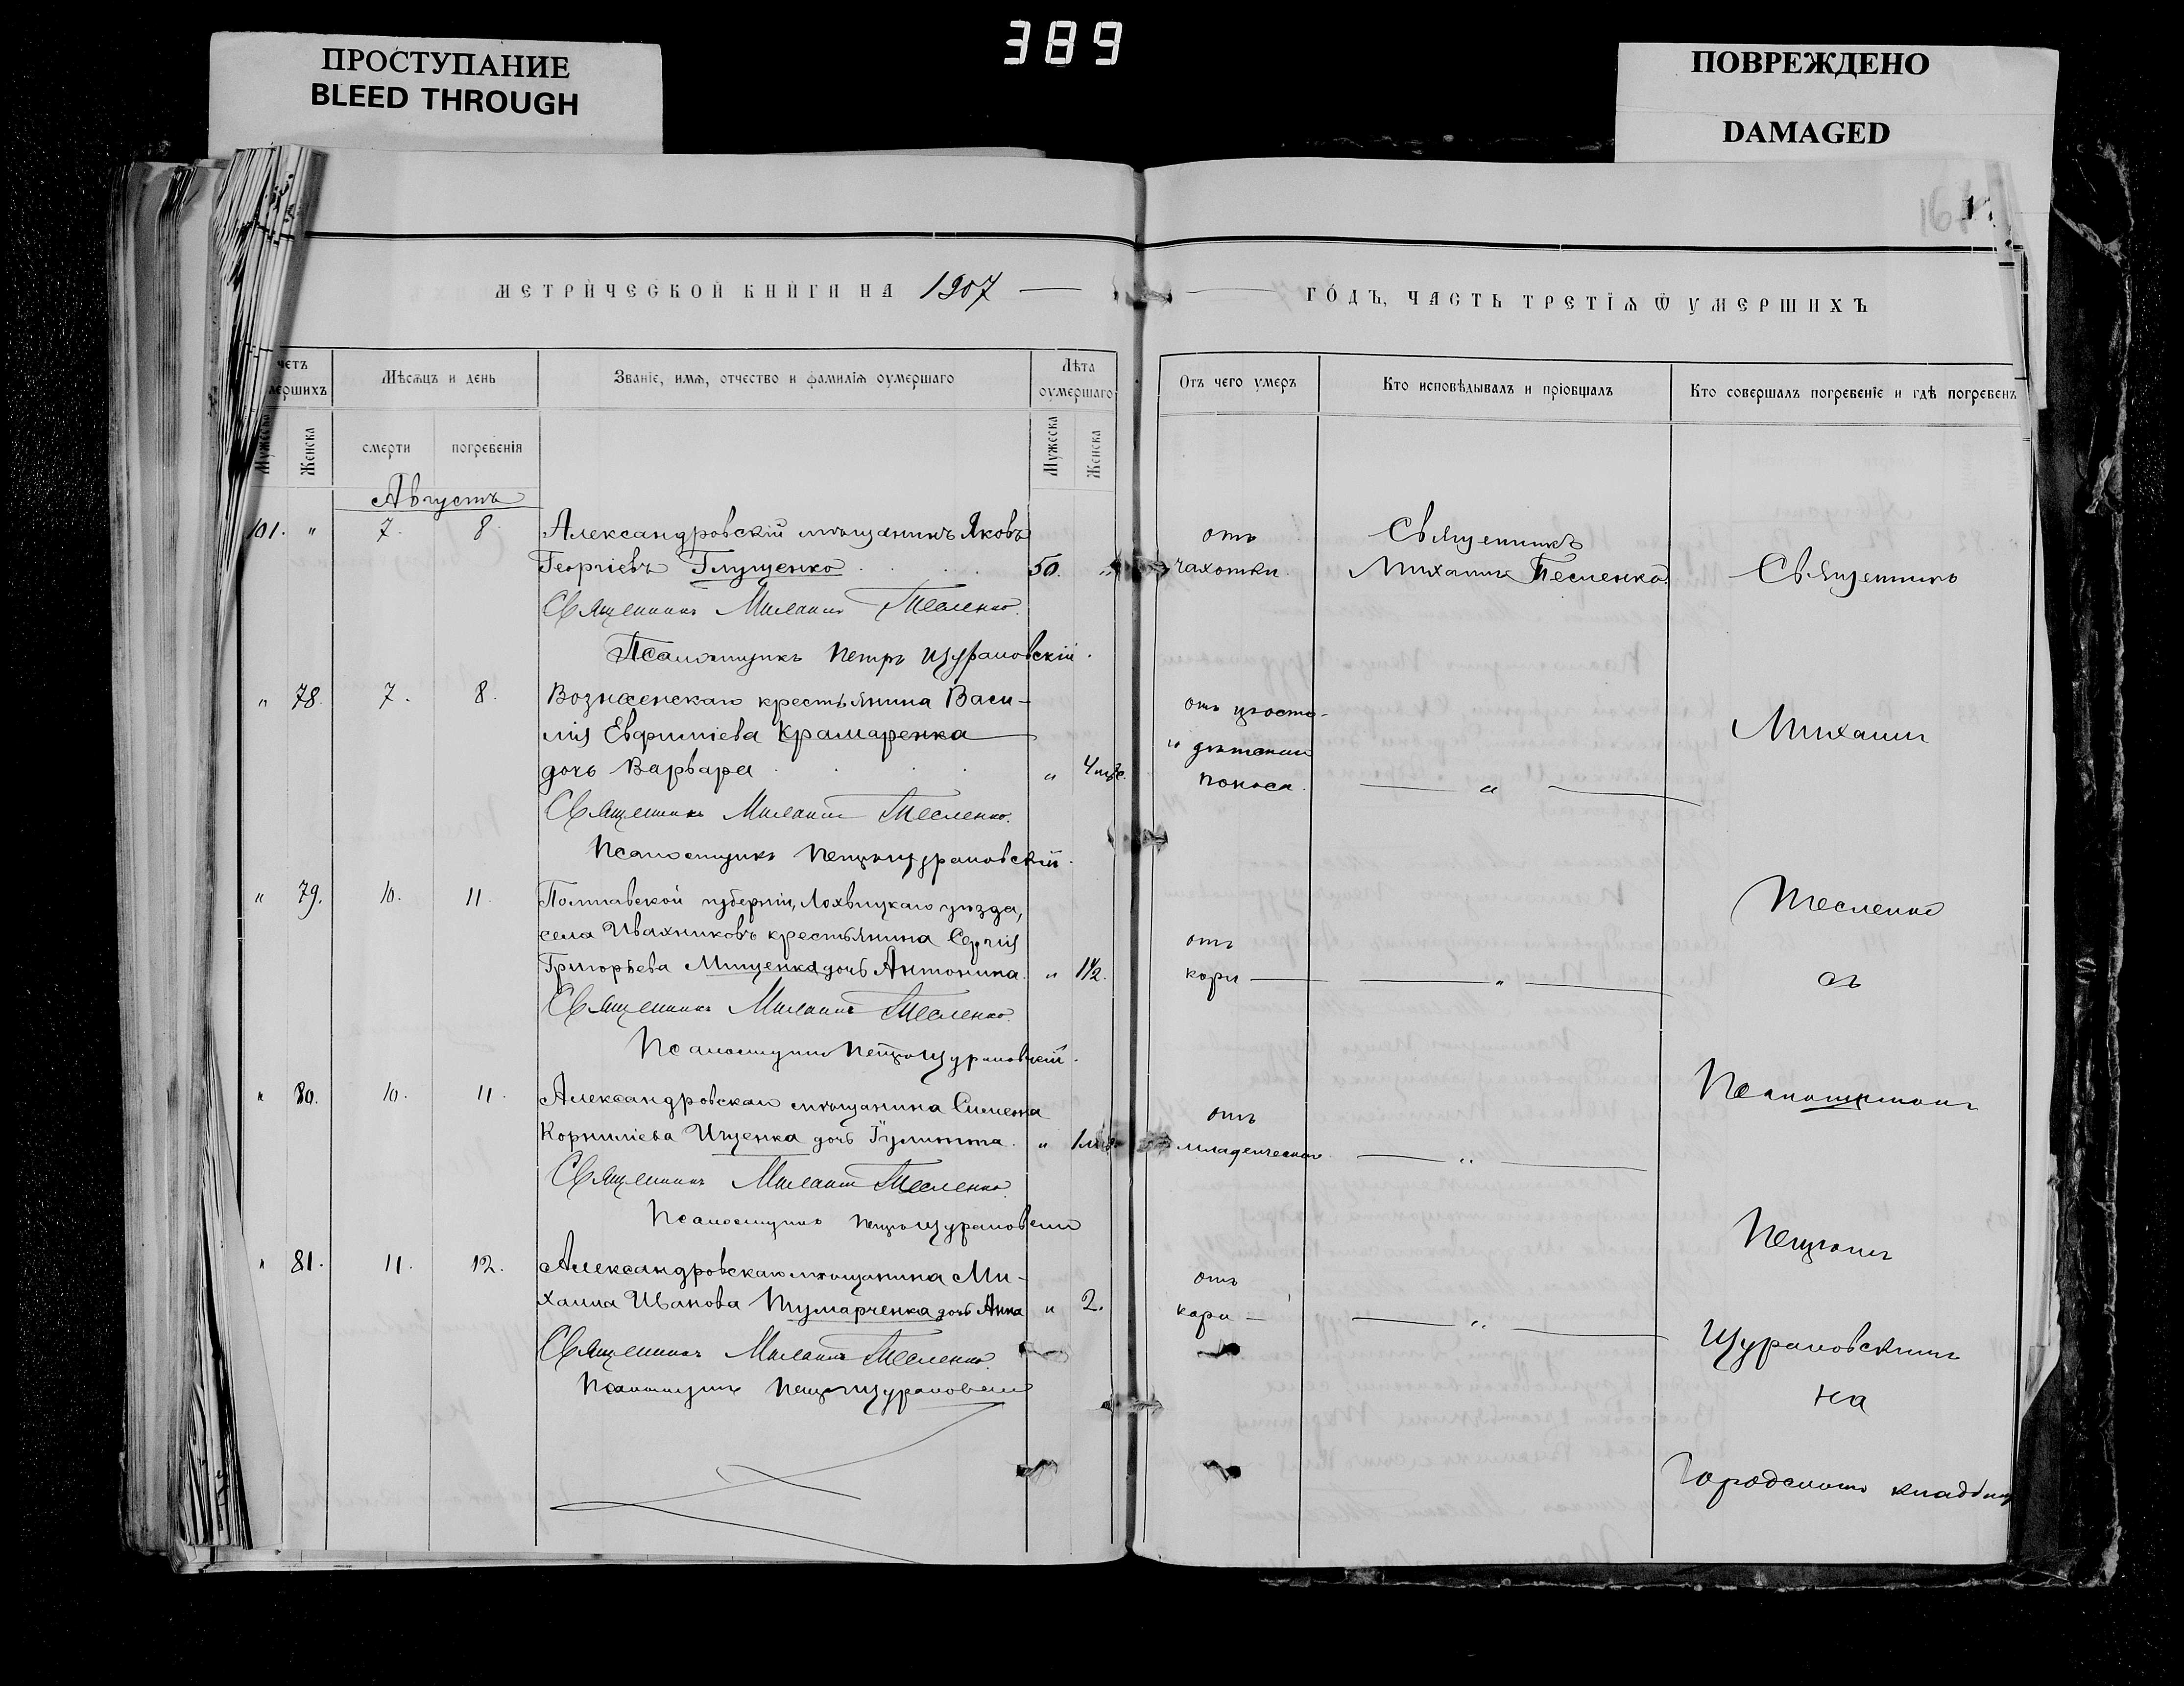 389
ПРОСТУПАНИЕ
BLEED THROUGH
ПОВРЕЖДЕНО
DAMAGED
МЕТРИ́ЧЕСКОЙ КНИ́ГИ НА 1907
ГО́ДЪ, ЧАСТЬ ТРЕТІѦ Ѿ УМЕРШИХЪ
четъ
мершихъ
Мѣсѧцъ и день
Званіе, имѧ, отчество и фамиліѧ оумершаго
Лѣта
оумершаго
Отъ чего умеръ
Кто исповѣдывалъ и пріобщалъ
Кто совершалъ погребеніе и гдѣ погребенъ
Мужеска
Женска
смерти
погребенія
Мужеска
Женска
Августъ
101. " 7. 8. Александровскій мѣщанинъ Яковъ
Георгіевъ Глущенко 50. "
отъ
чахотки.
Священникъ
Михаилъ Тесленко
Священникъ
Священникъ Михаилъ Тесленко.
Псаломщикъ Петръ Щурановскій.
" 78. 7. 8. Вознесенскаго крестьянина Васи-
лія Евфиміева Крамаренка
дочь Варвара " 4 мѣс.
отъ
поноса. "
Михаилъ
Священникъ Михаилъ Тесленко.
Псаломщикъ Петръ Щурановскій.
" 79. 10. 11. Полтавской губерніи, Лохвицкаго уѣзда,
села Ивахниковъ крестьянина Сергія
Григорьева Мищенка дочь Антонина. " 1 1/2.
отъ
кори "
Тесленко
съ
Священникъ Михаилъ Тесленко.
Псаломщикъ Петръ Щурановскій.
" 80. 10. 11. Александровскаго мѣщанина Симеона
Корниліева Ищенка дочь Іулитта. " 1 мѣс.
отъ
младенческой "
Псаломщикомъ
Священникъ Михаилъ Тесленко.
Псаломщикъ Петръ Щурановскій
Петромъ
" 81. 11. 12. Александровскаго мѣщанина Ми-
хаила Иванова Тумарченка дочь Анна " 2.
отъ
кори "
Щурановскимъ
на
Городскомъ кладбищѣ
Священникъ Михаилъ Тесленко.
Псаломщикъ Петръ Щурановскій